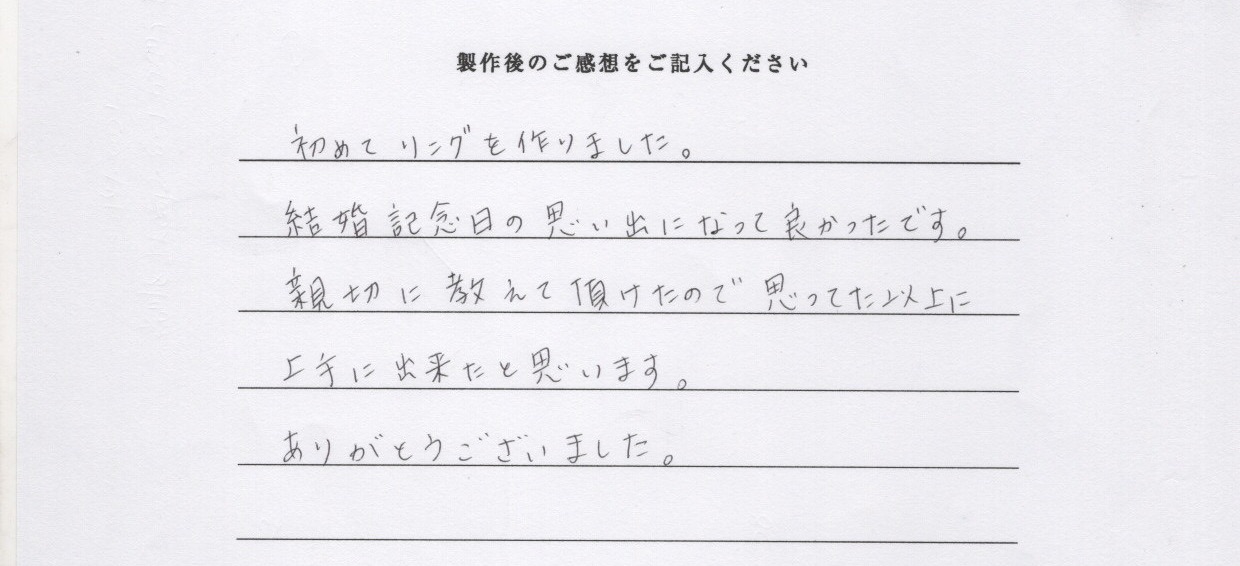 製作後のご感想をご記入ください
初めてリングを作りました。
結婚記念日の思い出になって良かったです。
親切に教えて頂けたので思ってた以上に
上手に出来たと思います。
ありがとうございました。